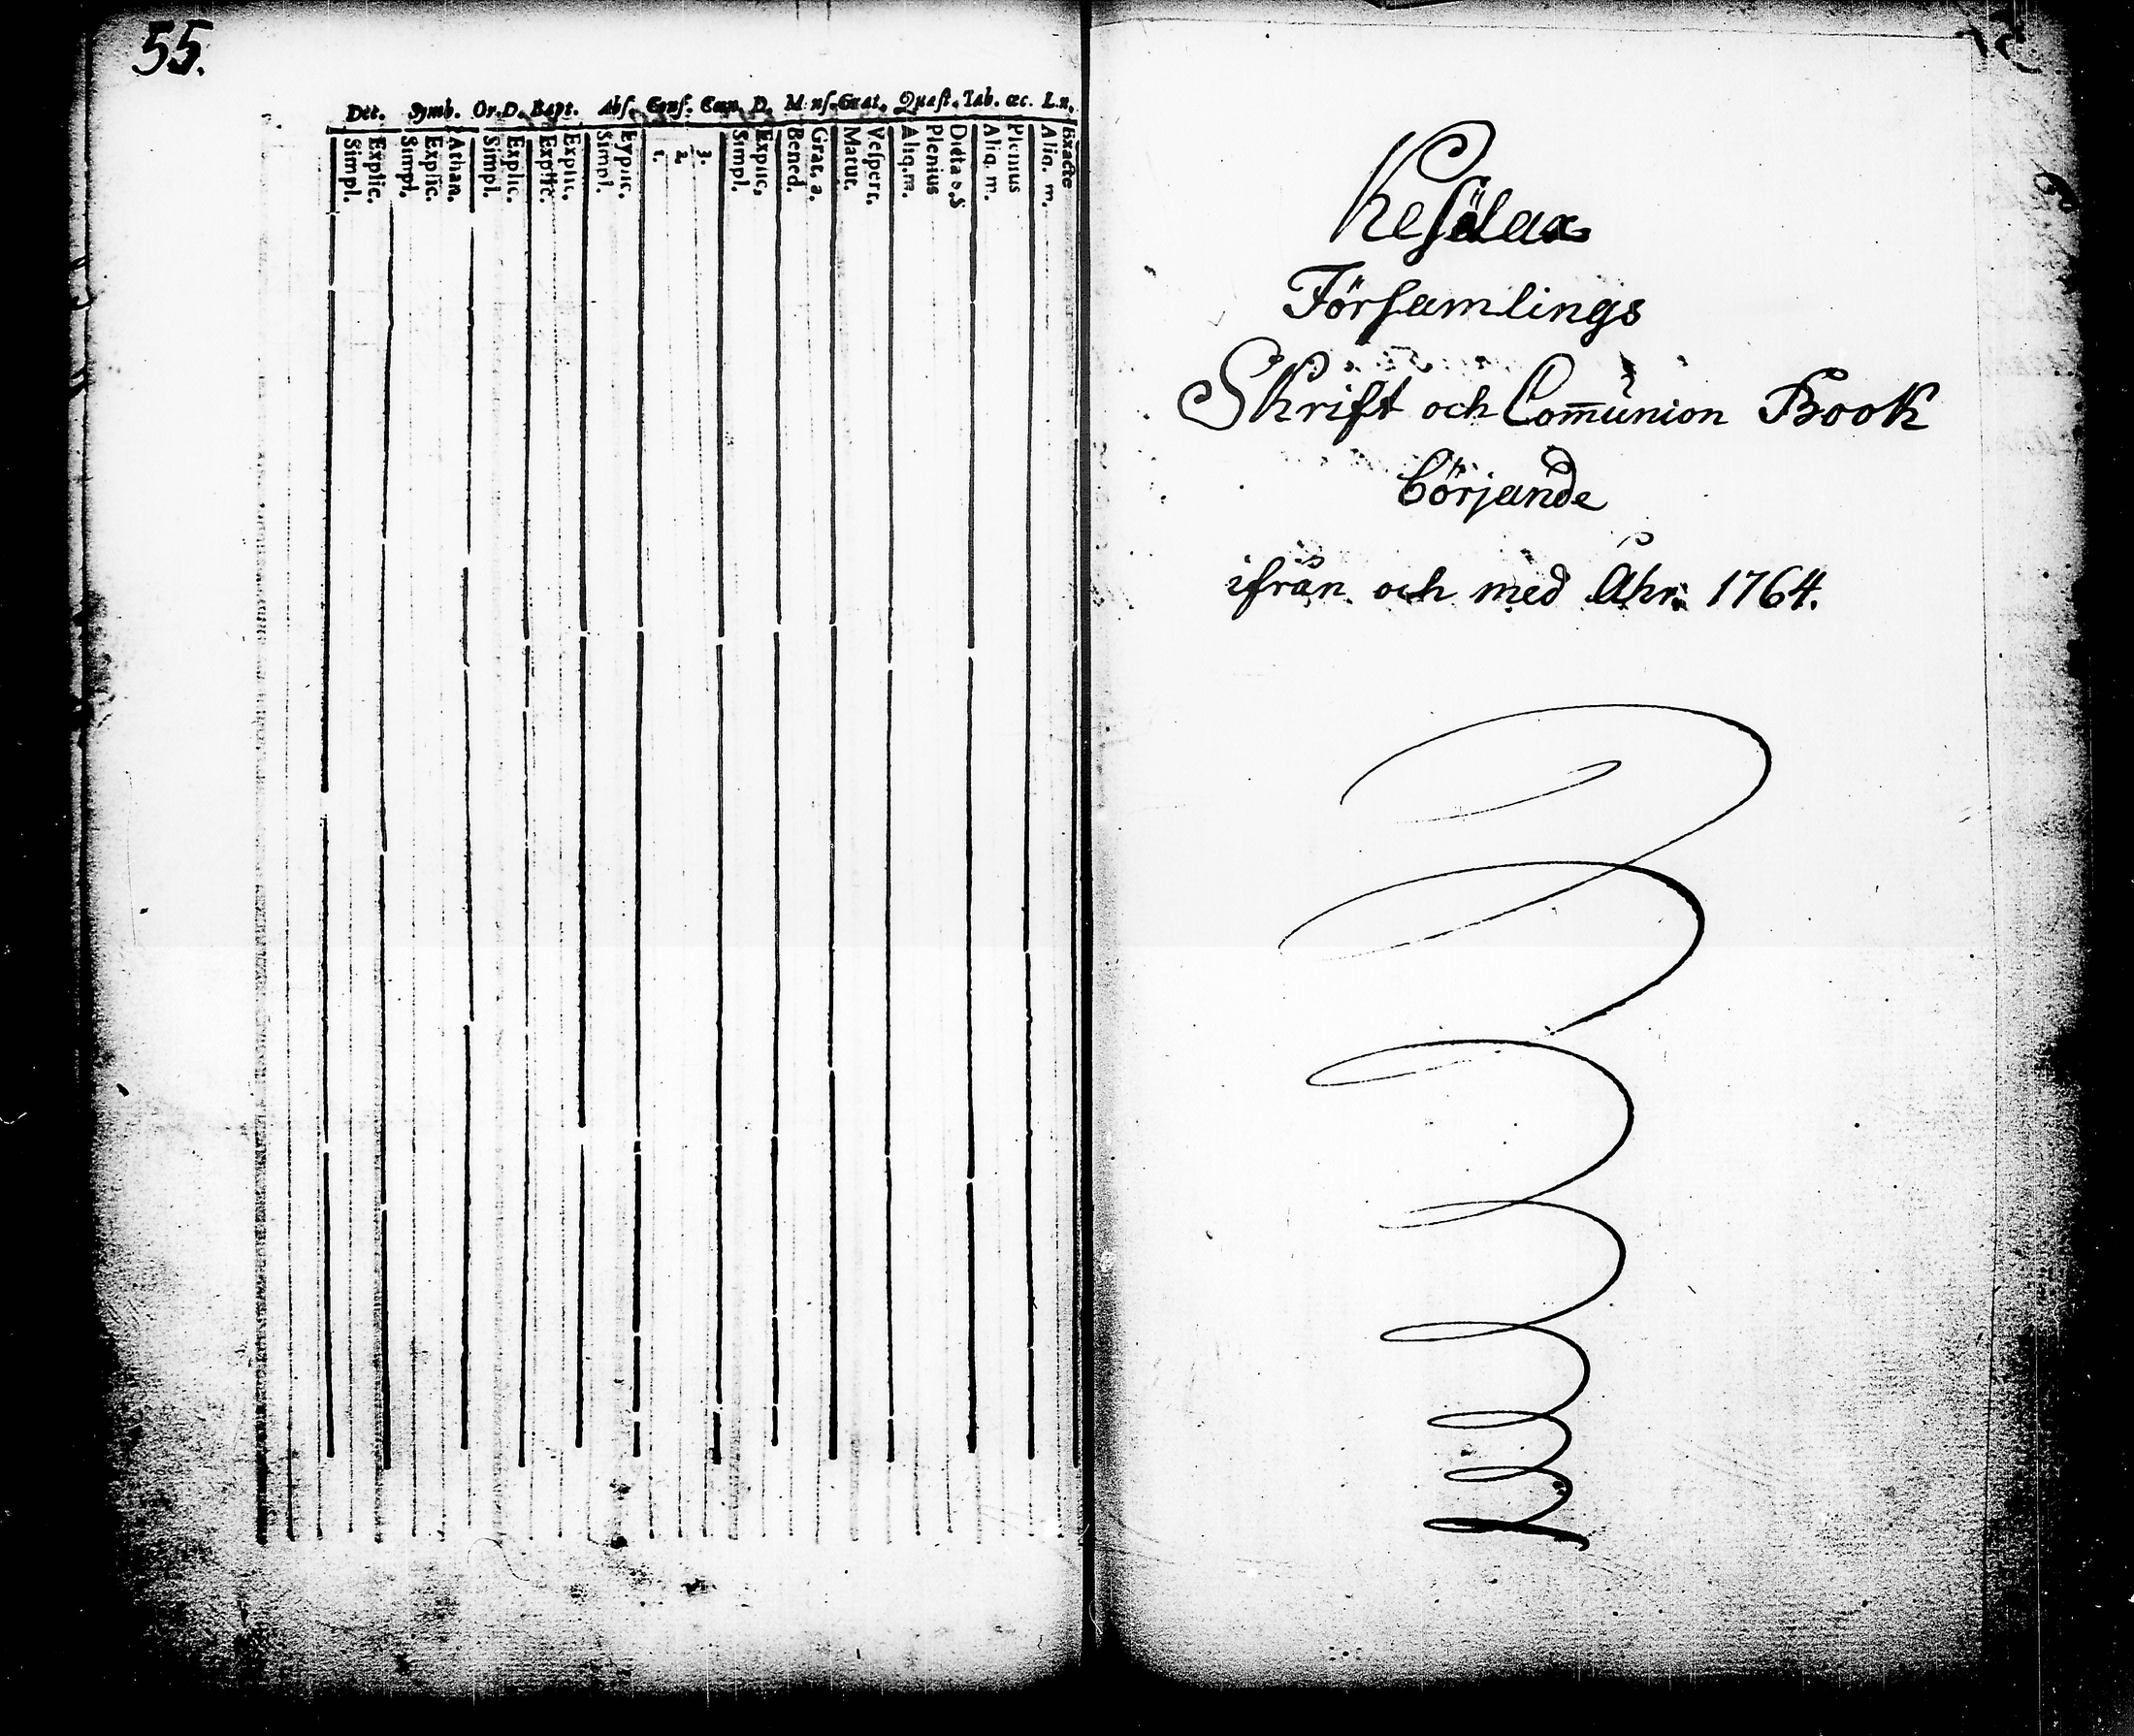 55.
Dec. Symb. Or. D. Bapt. Abs. Conf. Cœn. D. Mens. Grat. Quæst. Tab. œc.
Simpl.
Explic.
Simpl.
Explic.
Athan.
Simpl.
Explic.
Explic.
Explic.
Simpl.
1.
2.
3.
Simpl.
Explic.
Bened.
Grat. a.
Matut.
Vespert.
Aliq. m.
Plenius
Dicta S. S
Aliq. m.
Plenius
Aliq. m.
Exacte
Kesälax
Församlings
Skrift och Com̅union Book
börjande
ifrån och med Åhr 1764.